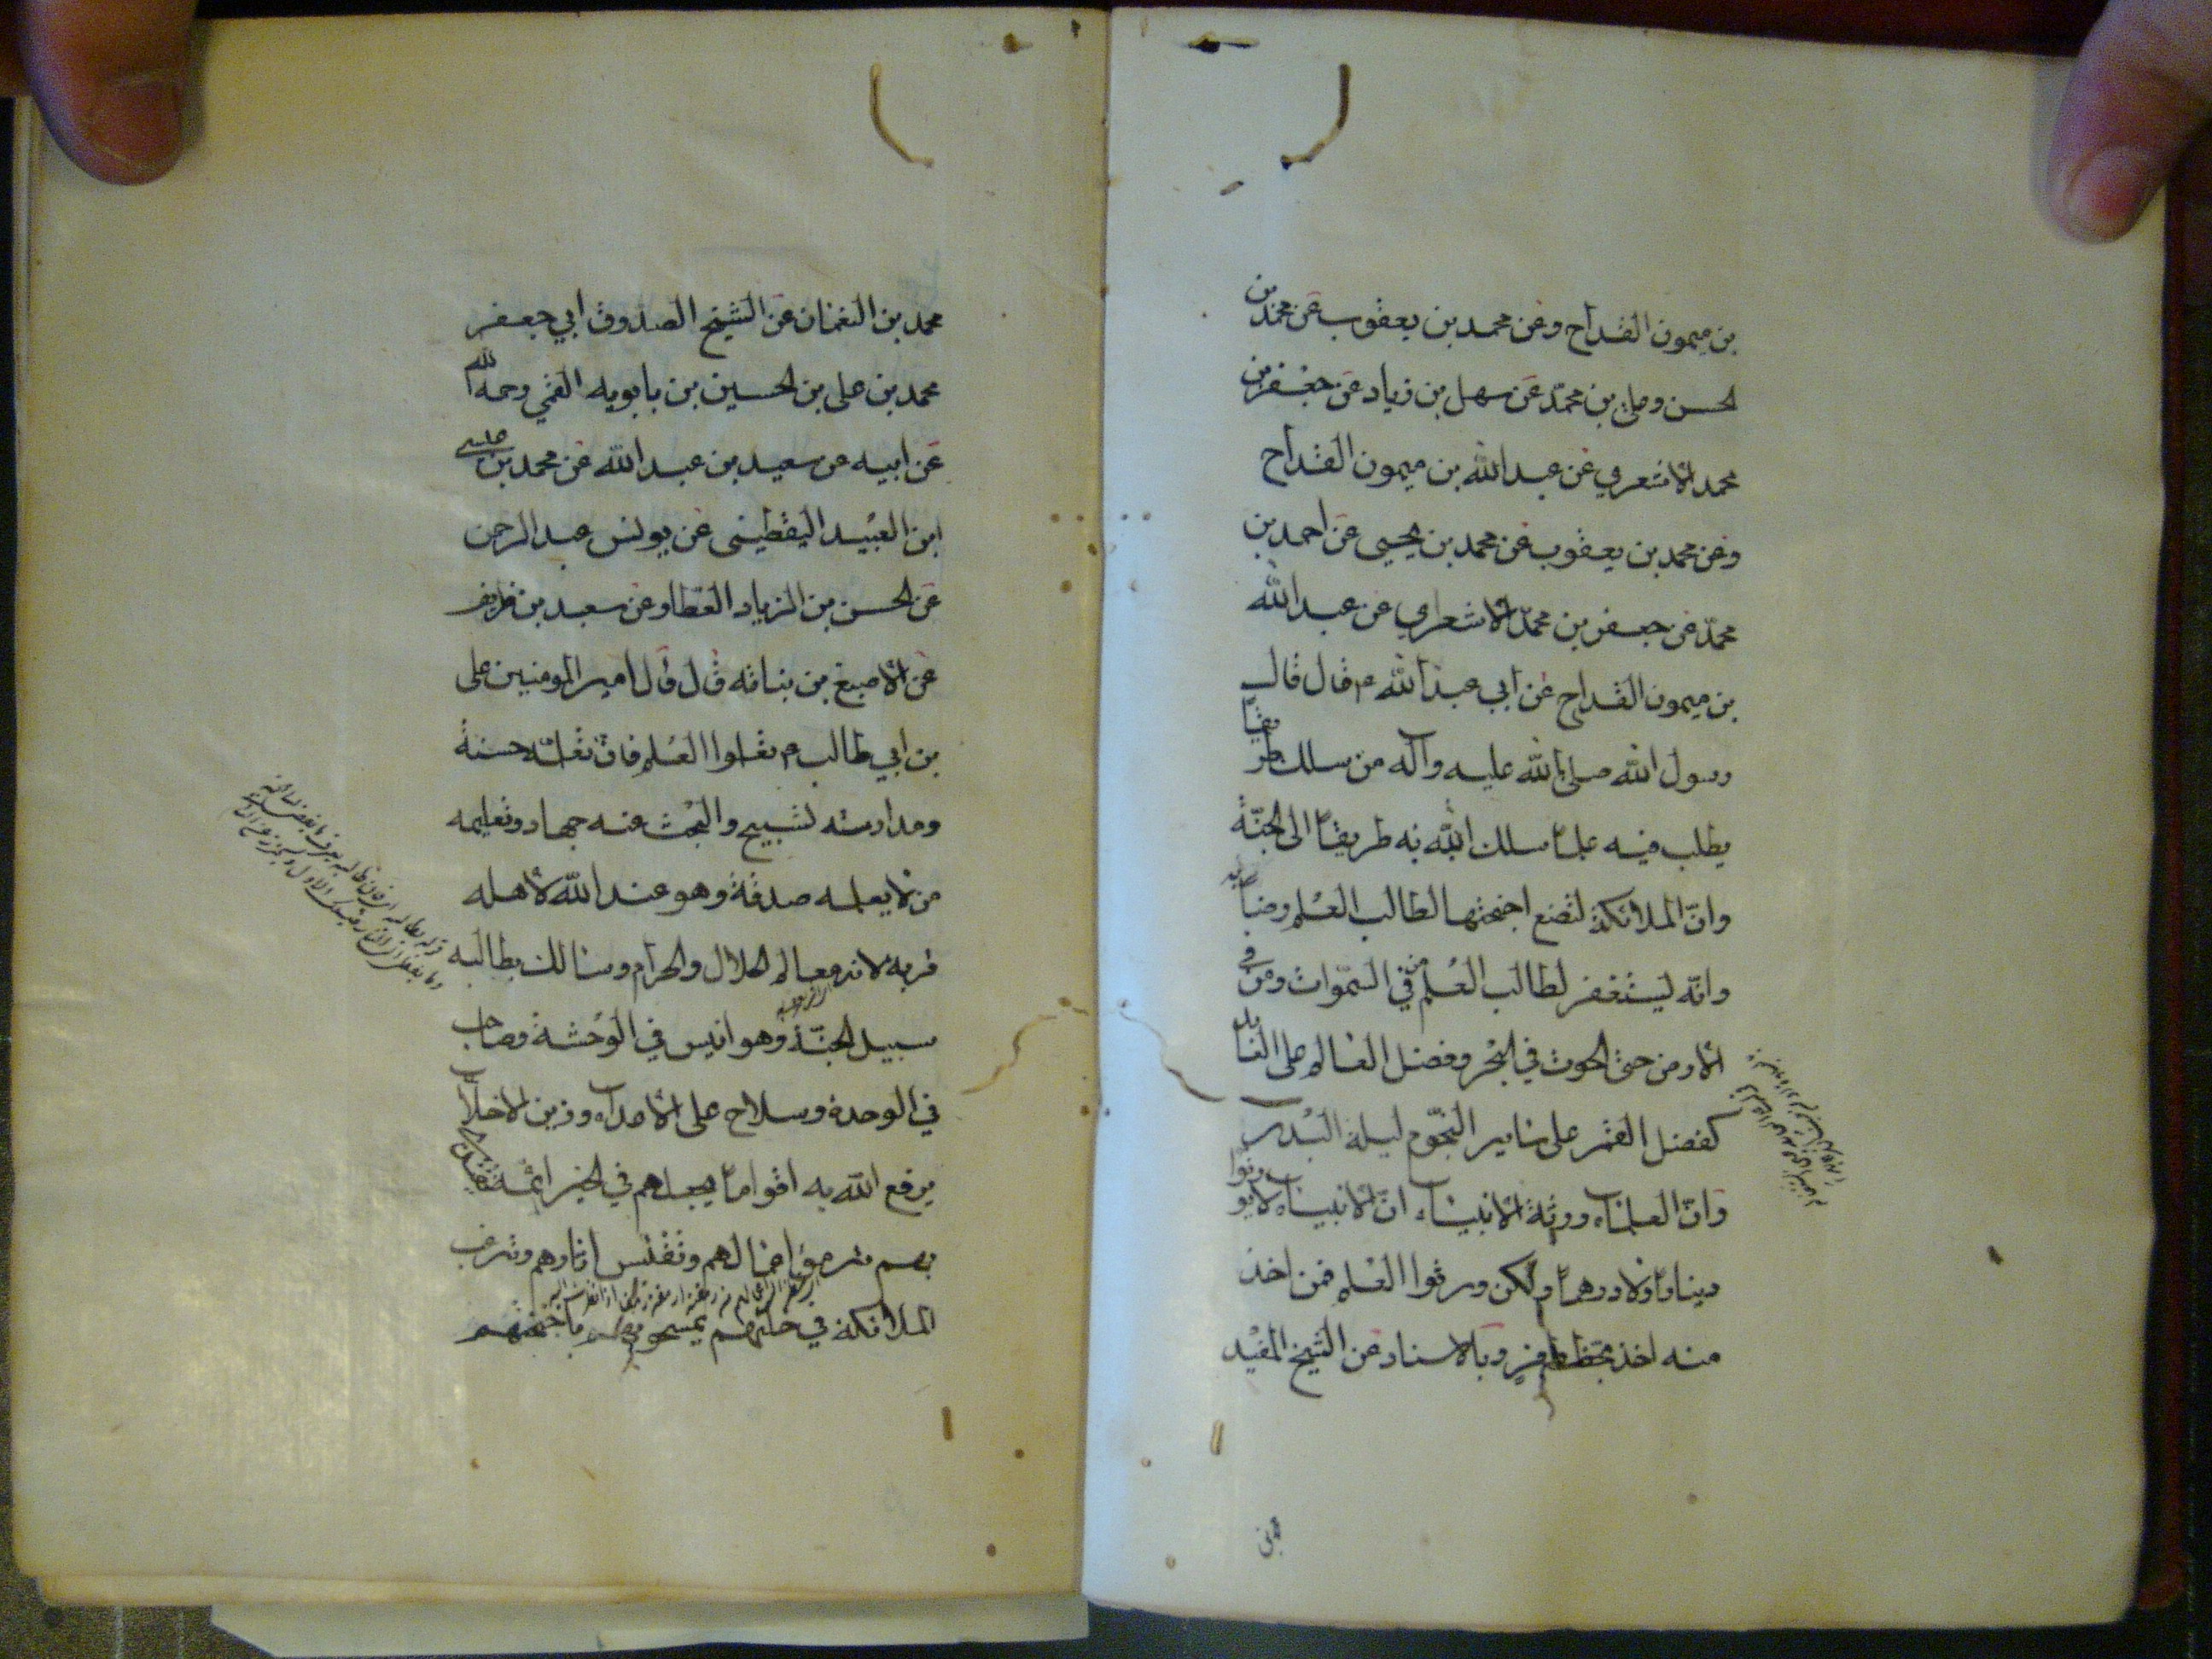 بن ميمون القداح وعن محمد بن يعقوب عن محمد بن
الحسن وعلي بن محمد عن سهل بن زياد عن جعفر بن
محمد الاشعري عن عبد الله بن ميمون القداح
وعن محمد بن يعقوب عن محمد بن يحيى عن احمد بن
محمد عن جعفر بن محمد الاشعري عن عبد الله
بن ميمون القداح عن ابي عبد الله ع قال قال
رسول الله صلى الله عليه وآله من سلك طريقا
يطلب فيه علما سلك الله به طريقا الى الجنة
وان الملائكة لتضع اجنحتها لطالب العلم رضا به
وانه ليستغفر لطالب العلم من في السموات ومن في
الارض حتى الحوت في البحر وفضل العالم على العابد
كفضل القمر على ساير النجوم ليلة البدر
وان العلماء ورثة الانبياء ان الانبياء لا يورثوا
دينارا ولا درهما ولكن ورثوا العلم فمن اخذ
منه اخذ بحظ وافر وبالاسناد عن الشيخ المفيد
محمد بن
محمد بن النعمان عن الشيخ الصدوق ابي جعفر
محمد بن علي بن الحسين بن بابويه القمي رحمه الله
عن ابيه عن سعيد بن عبد الله عن محمد بن عيسى
ابن العبيد اليقطيني عن يونس عبد الرحمن
عن الحسن بن الزياد العطار عن سعد بن طريف
عن الاصبغ بن بناته قال قال امير المومنين علي
بن ابي طالب ع تعلموا العلم فان تعلمه حسنة
ومدارسته تسبيح والبحث عنه جهاد وتعليمه
من لا يعلمه صدقة وهو عند الله لاهله
قربة لانه معالم الحلال والحرام وسالك بطالبه
سبيل الجنة وهو انيس في الوحشة وصاحب
في الوحدة وسلاح على الاعداء وزين الاخلاء
يرفع الله به اقواما يجعلهم في الخير ائمة يقتدى
بهم ترمق اعمالهم وتقتبس اثارهم وترغب
الملائكة في خلتهم يمسحونهم باجنحتهم